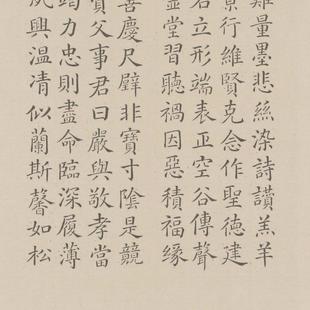 難量墨悲絲染詩讚羔羊
景行維賢克念作聖德建
名立形端表正空谷傳聲
虛堂習聽禍因惡積福緣
善慶尺璧非寶寸陰是競
資父事君曰嚴與敬孝當
竭力忠則盡命臨深履薄
夙興溫清似蘭斯馨如松